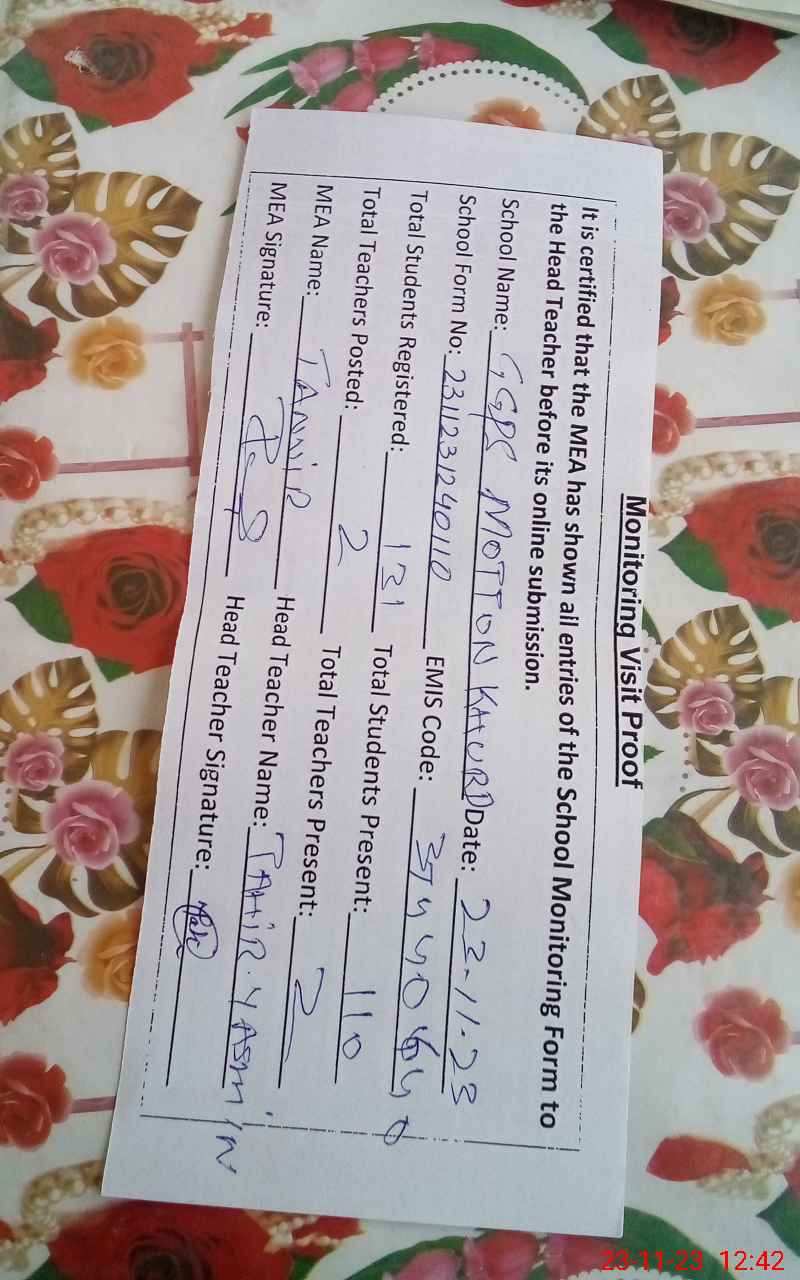 Monitoring Visit Proof
It is certified that the MEA has shown all entries of the School Monitoring Form to
the Head Teacher before its online submission.
School Name: GGPS MOTTON KHURD Date: 23.11.23
School Form No: 231123124010 EMIS Code:
Total Students Registered: 131 Total Students Present: 110
Total Teachers Posted: 2 Total Teachers Present: 2
MEA Name: TANVIR Head Teacher Name: TAHIR.YASMIN
MEA Signature: Head Teacher Signature:
23-11-23 12:42